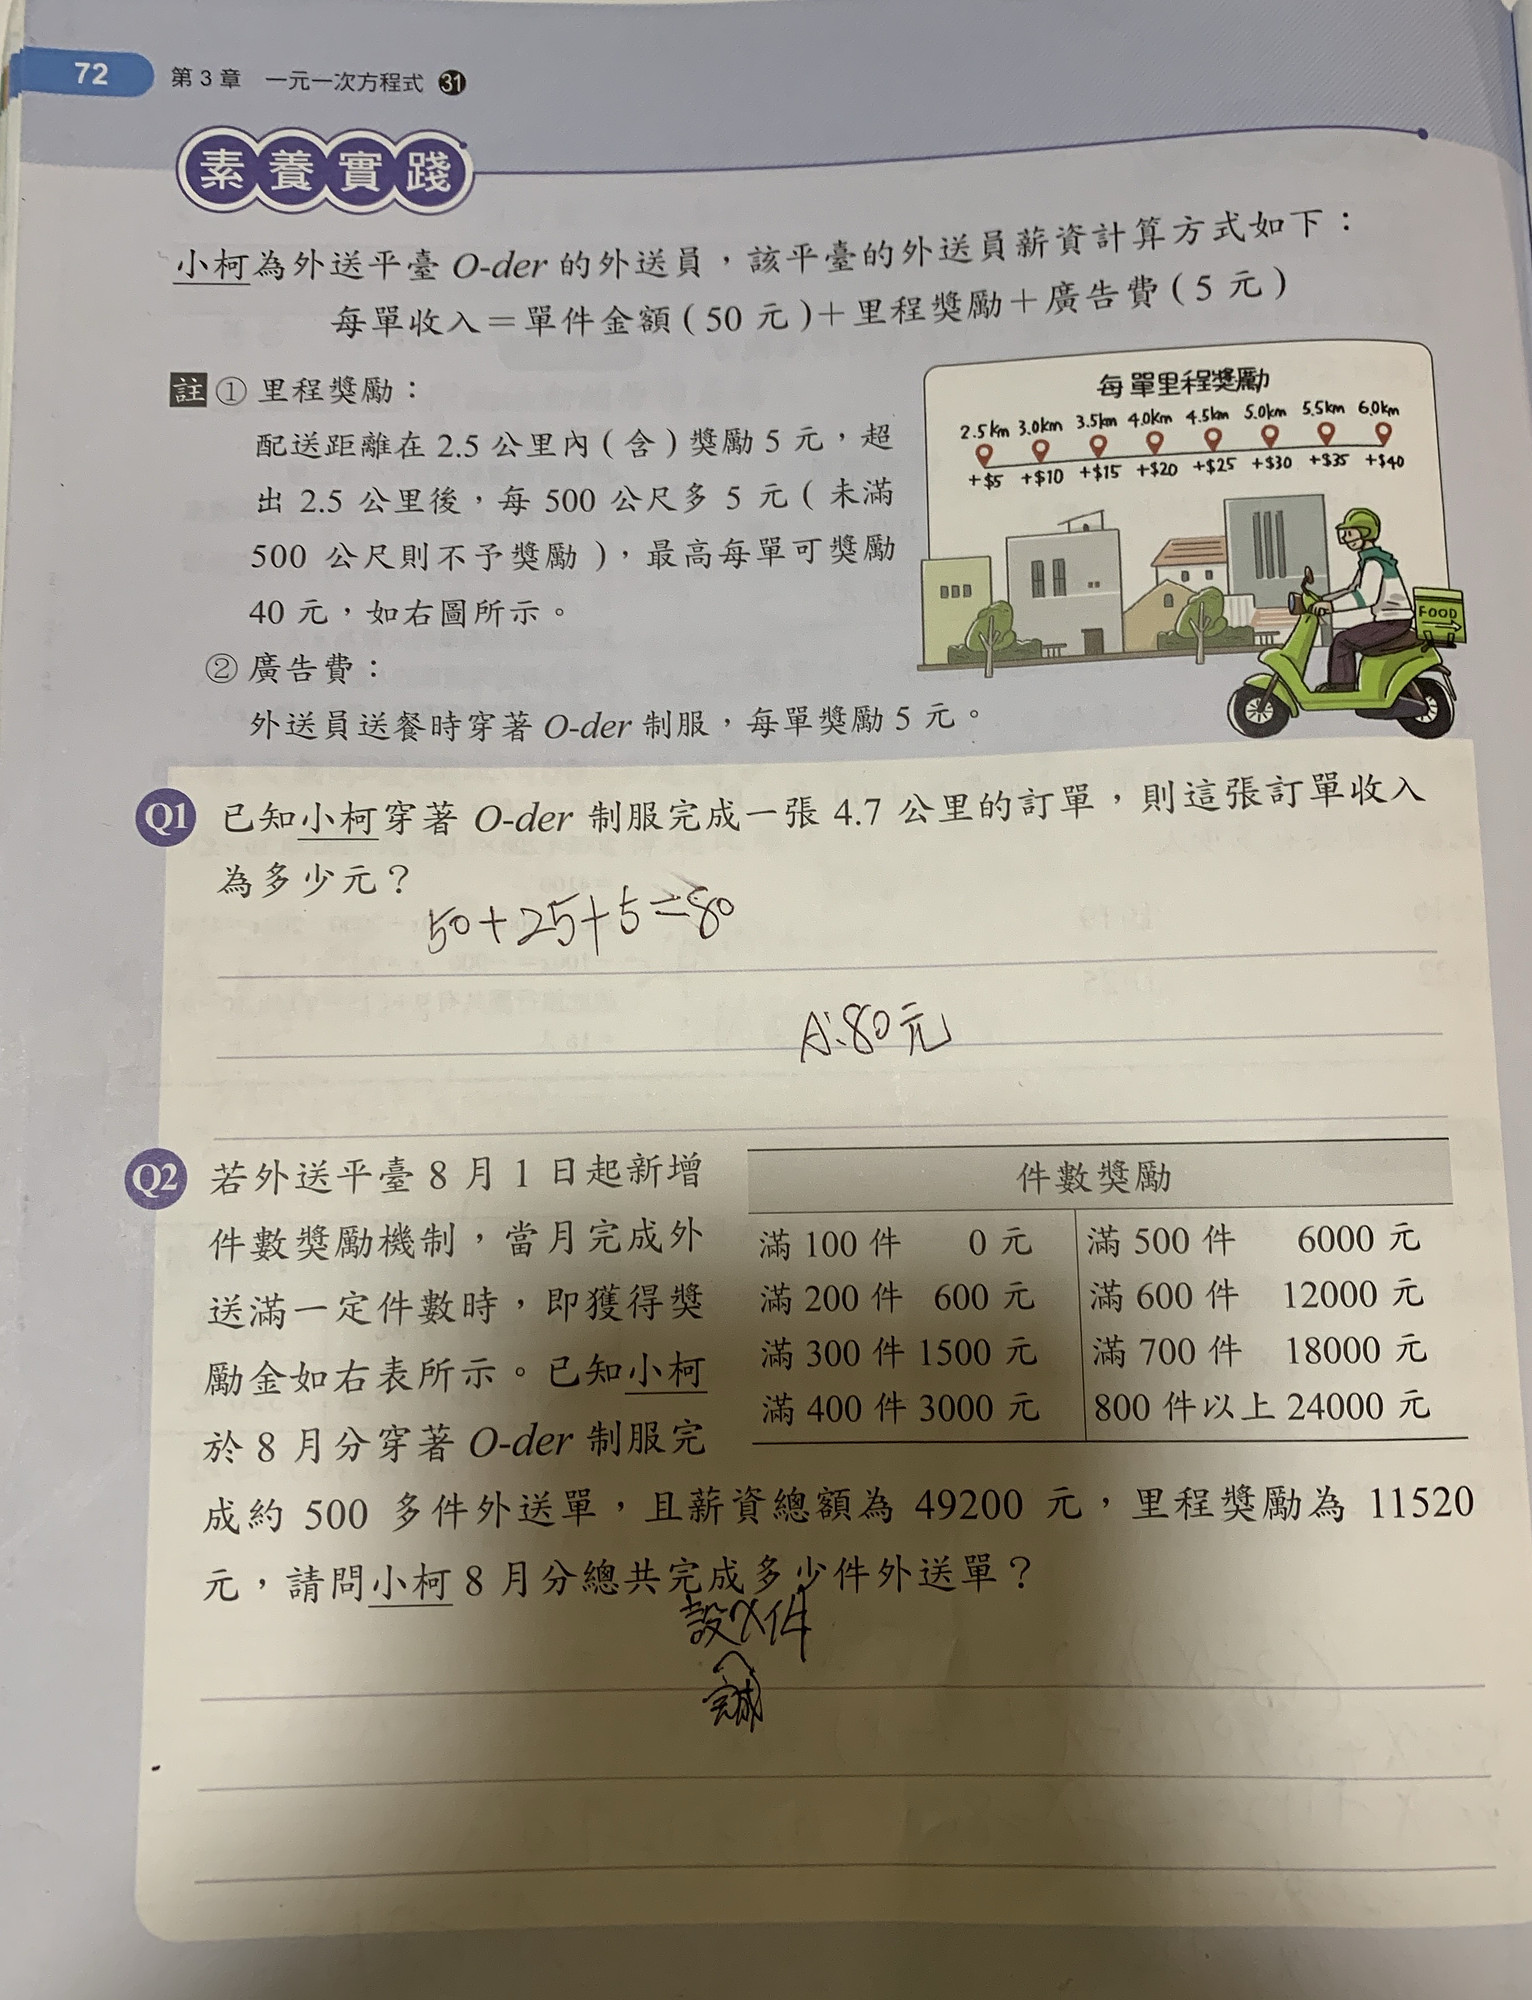 72 第3章 一元一次方程式 31
素養實踐
小柯為外送平臺 O-der 的外送員，該平臺的外送員薪資計算方式如下：
每單收入＝單件金額(50元)＋里程獎勵＋廣告費(5元)
註 ① 里程獎勵：
配送距離在 2.5 公里內(含)獎勵 5 元，超
出 2.5 公里後，每 500 公尺多 5 元(未滿
500 公尺則不予獎勵)，最高每單可獎勵
40 元，如右圖所示。
② 廣告費：
外送員送餐時穿著 O-der 制服，每單獎勵 5 元。
每單里程獎勵
2.5km 3.0km 3.5km 4.0km 4.5km 5.0km 5.5km 6.0km
+$5 +$10 +$15 +$20 +$25 +$30 +$35 +$40
FOOD
Q1 已知小柯穿著 O-der 制服完成一張 4.7 公里的訂單，則這張訂單收入
為多少元？
50+25+5=80
A:80元
Q2 若外送平臺 8 月 1 日起新增
件數獎勵機制，當月完成外
送滿一定件數時，即獲得獎
勵金如右表所示。已知小柯
於 8 月分穿著 O-der 制服完
成約 500 多件外送單，且薪資總額為 49200 元，里程獎勵為 11520
元，請問小柯 8 月分總共完成多少件外送單？
件數獎勵
滿 100 件 0 元 滿 500 件 6000 元
滿 200 件 600 元 滿 600 件 12000 元
滿 300 件 1500 元 滿 700 件 18000 元
滿 400 件 3000 元 800 件以上 24000 元
設x件
完成